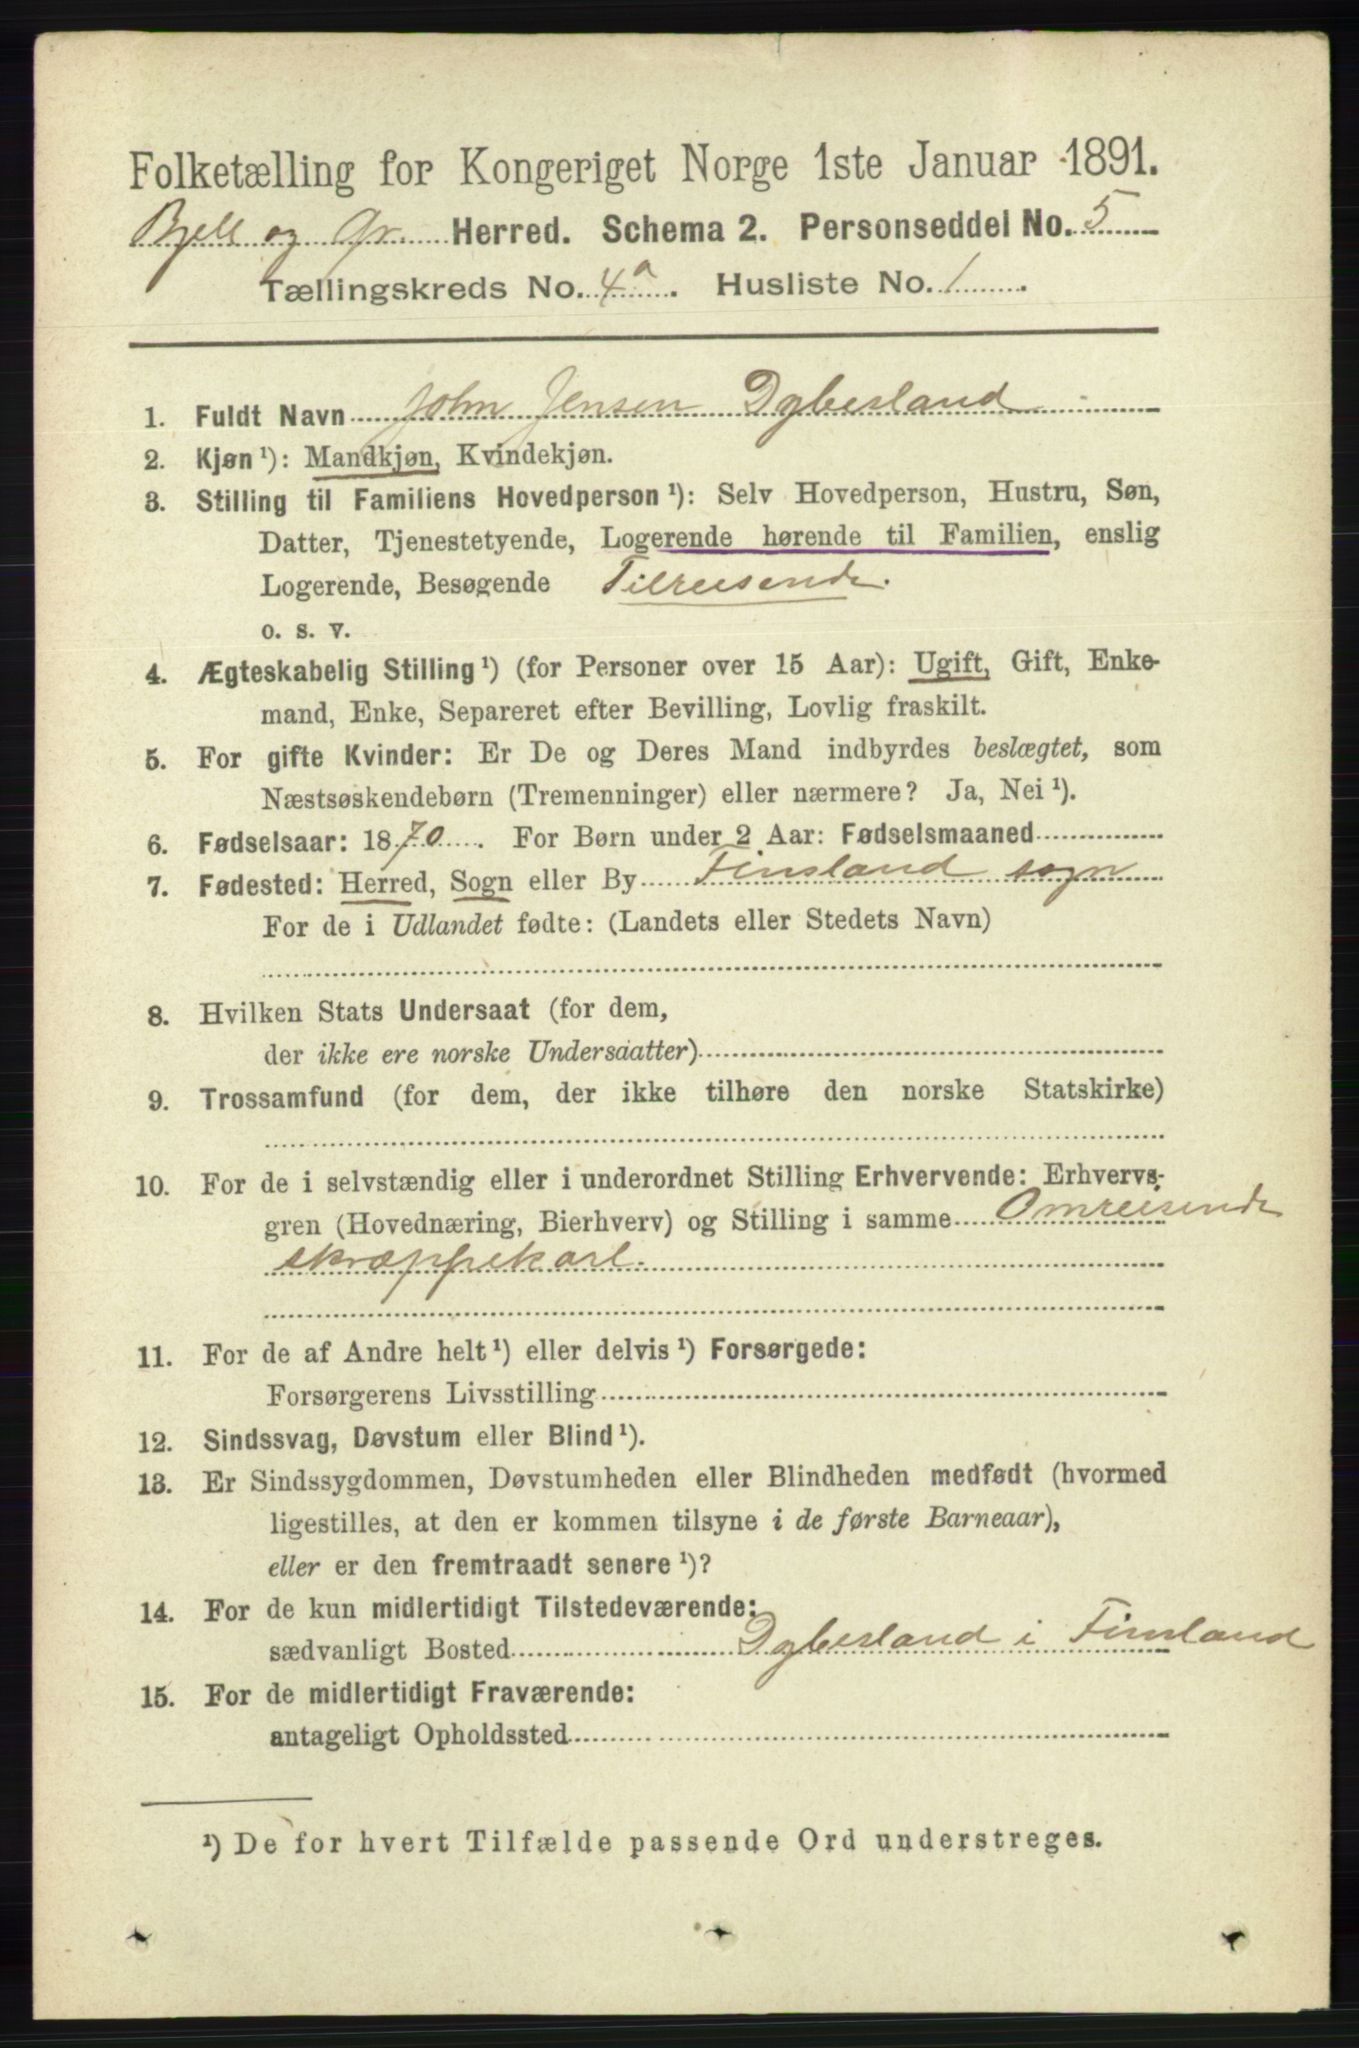 Folketælling for Kongeriget Norge 1ste Januar 1891.
Bjell og Gr. Herred. Schema 2. Personseddel No. 5
Tællingskreds No. 4a. Husliste No. 1.
1. Fuldt Navn John Jensen Dybesland
2. Kjøn ¹): Mandkjøn, Kvindekjøn.
3. Stilling til Familiens Hovedperson ¹): Selv Hovedperson, Hustru, Søn,
Datter, Tjenestetyende, Logerende hørende til Familien, enslig
Logerende, Besøgende Tilreisende.
o. s. v.
4. Ægteskabelig Stilling ¹) (for Personer over 15 Aar): Ugift, Gift, Enke-
mand, Enke, Separeret efter Bevilling, Lovlig fraskilt.
5. For gifte Kvinder: Er De og Deres Mand indbyrdes beslægtet, som
Næstsøskendebørn (Tremenninger) eller nærmere? Ja, Nei ¹).
6. Fødselsaar: 1870. For Børn under 2 Aar: Fødselsmaaned
7. Fødested: Herred, Sogn eller By Finsland sogn
For de i Udlandet fødte: (Landets eller Stedets Navn)
8. Hvilken Stats Undersaat (for dem,
der ikke ere norske Undersaatter)
9. Trossamfund (for dem, der ikke tilhøre den norske Statskirke)
10. For de i selvstændig eller i underordnet Stilling Erhvervende: Erhvervs-
gren (Hovednæring, Bierhverv) og Stilling i samme Omreisende
skræppekarl.
11. For de af Andre helt ¹) eller delvis ¹) Forsørgede:
Forsørgerens Livsstilling
12. Sindssvag, Døvstum eller Blind ¹).
13. Er Sindssygdommen, Døvstumheden eller Blindheden medfødt (hvormed
ligestilles, at den er kommen tilsyne i de første Barneaar),
eller er den fremtraadt senere ¹)?
14. For de kun midlertidigt Tilstedeværende:
sædvanligt Bosted Dybesland i Finsland
15. For de midlertidigt Fraværende:
antageligt Opholdssted
¹) De for hvert Tilfælde passende Ord understreges.